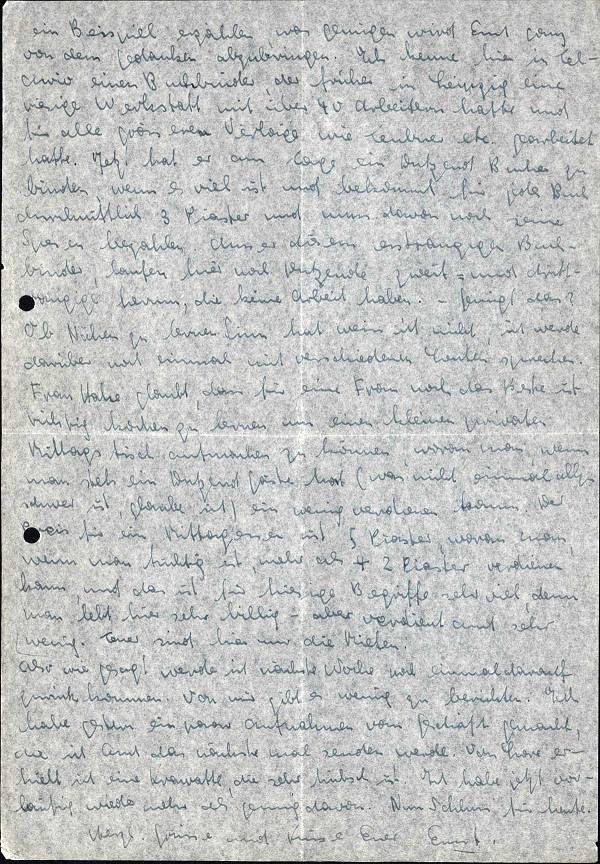 ein Beispiel erzählen was genügen wird Euch ganz
von dem Gedanken abzubringen. Ich kenne hier in Tel-
Awiv einen Buchbinder, der früher in Leipzig eine
riesige Werkstatt mit über 40 Arbeitern hatte und
für alle grösseren Verlage wie Teubner etc. gearbeitet
hatte. Jetzt hat er am Tage ein Dutzend Bücher zu
binden wenn es viel ist und bekommt für jedes Buch
durschnittlich 3 Piaster und muss davon noch seine
Spesen bezahlen. Ausser diesem erstrangigen Buch-
binder, laufen hier noch Dutzende zweit- und dritt-
rangige herum, die keine Arbeit haben. - Genügt das?
Ob Nähen zu lernen Sinn hat weiss ich nicht, ich werde
darüber noch einmal mit verschiedenen Leuten sprechen.
Frau Hahn glaubt, dass für eine Frau noch das Beste ist
richtig kochen zu lernen um einen kleinen privaten
Mittagstisch aufmachen zu können, woran man, wenn
man stets ein Dutzend Gäste hat (was nicht einmal allzu
schwer ist, glaube ich) ein wenig verdienen kann. Der
Preis für ein Mittagessen ist 5 Piaster, woran man,
wenn man tüchtig ist, mehr als 2 Piaster verdienen
kann, und das ist für hiesige Begriffe sehr viel, denn
man lebt hier sehr billig - aber verdient auch sehr
wenig. Teuer sind hier nur die Mieten.
Also wie gesagt werde ich nächste Woche noch einmal darauf
zurück kommen. Von mir gibt es wenig zu berichten. Ich
habe gestern ein paar Aufnahmen vom Geschäft gemacht,
die ich Euch das nächste mal senden werde. Von Lore er-
hielt ich eine Krawatte, die sehr hübsch ist. Ich habe jetzt vor-
läufig wieder mehr als genug davon. Nun Schluss für heute.
Herzl. Grüsse und Küsse Euer Ernst.